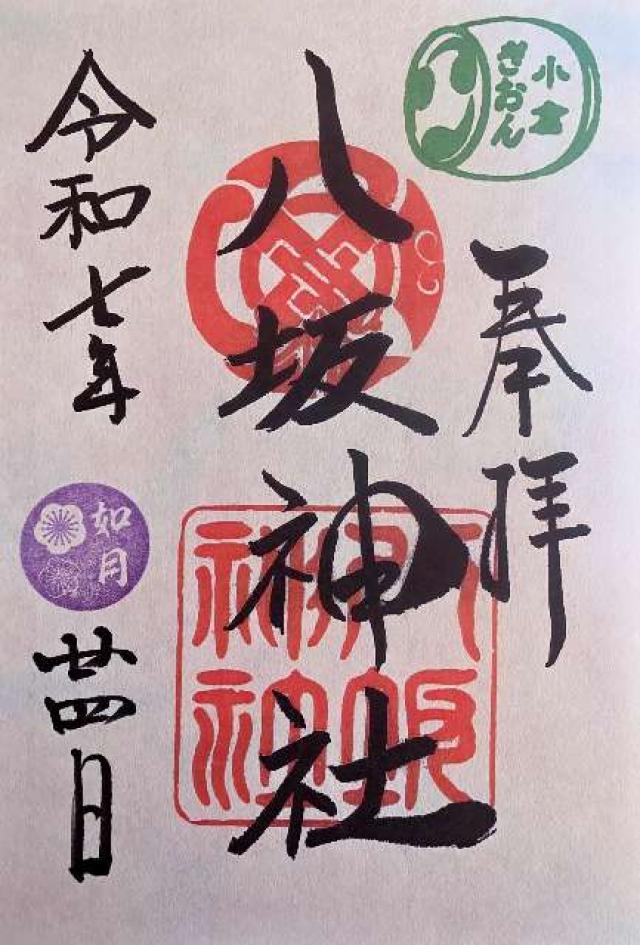 小倉
ぎおん
奉拝
八坂神社
八坂神社
令和七年
如月
廿四日